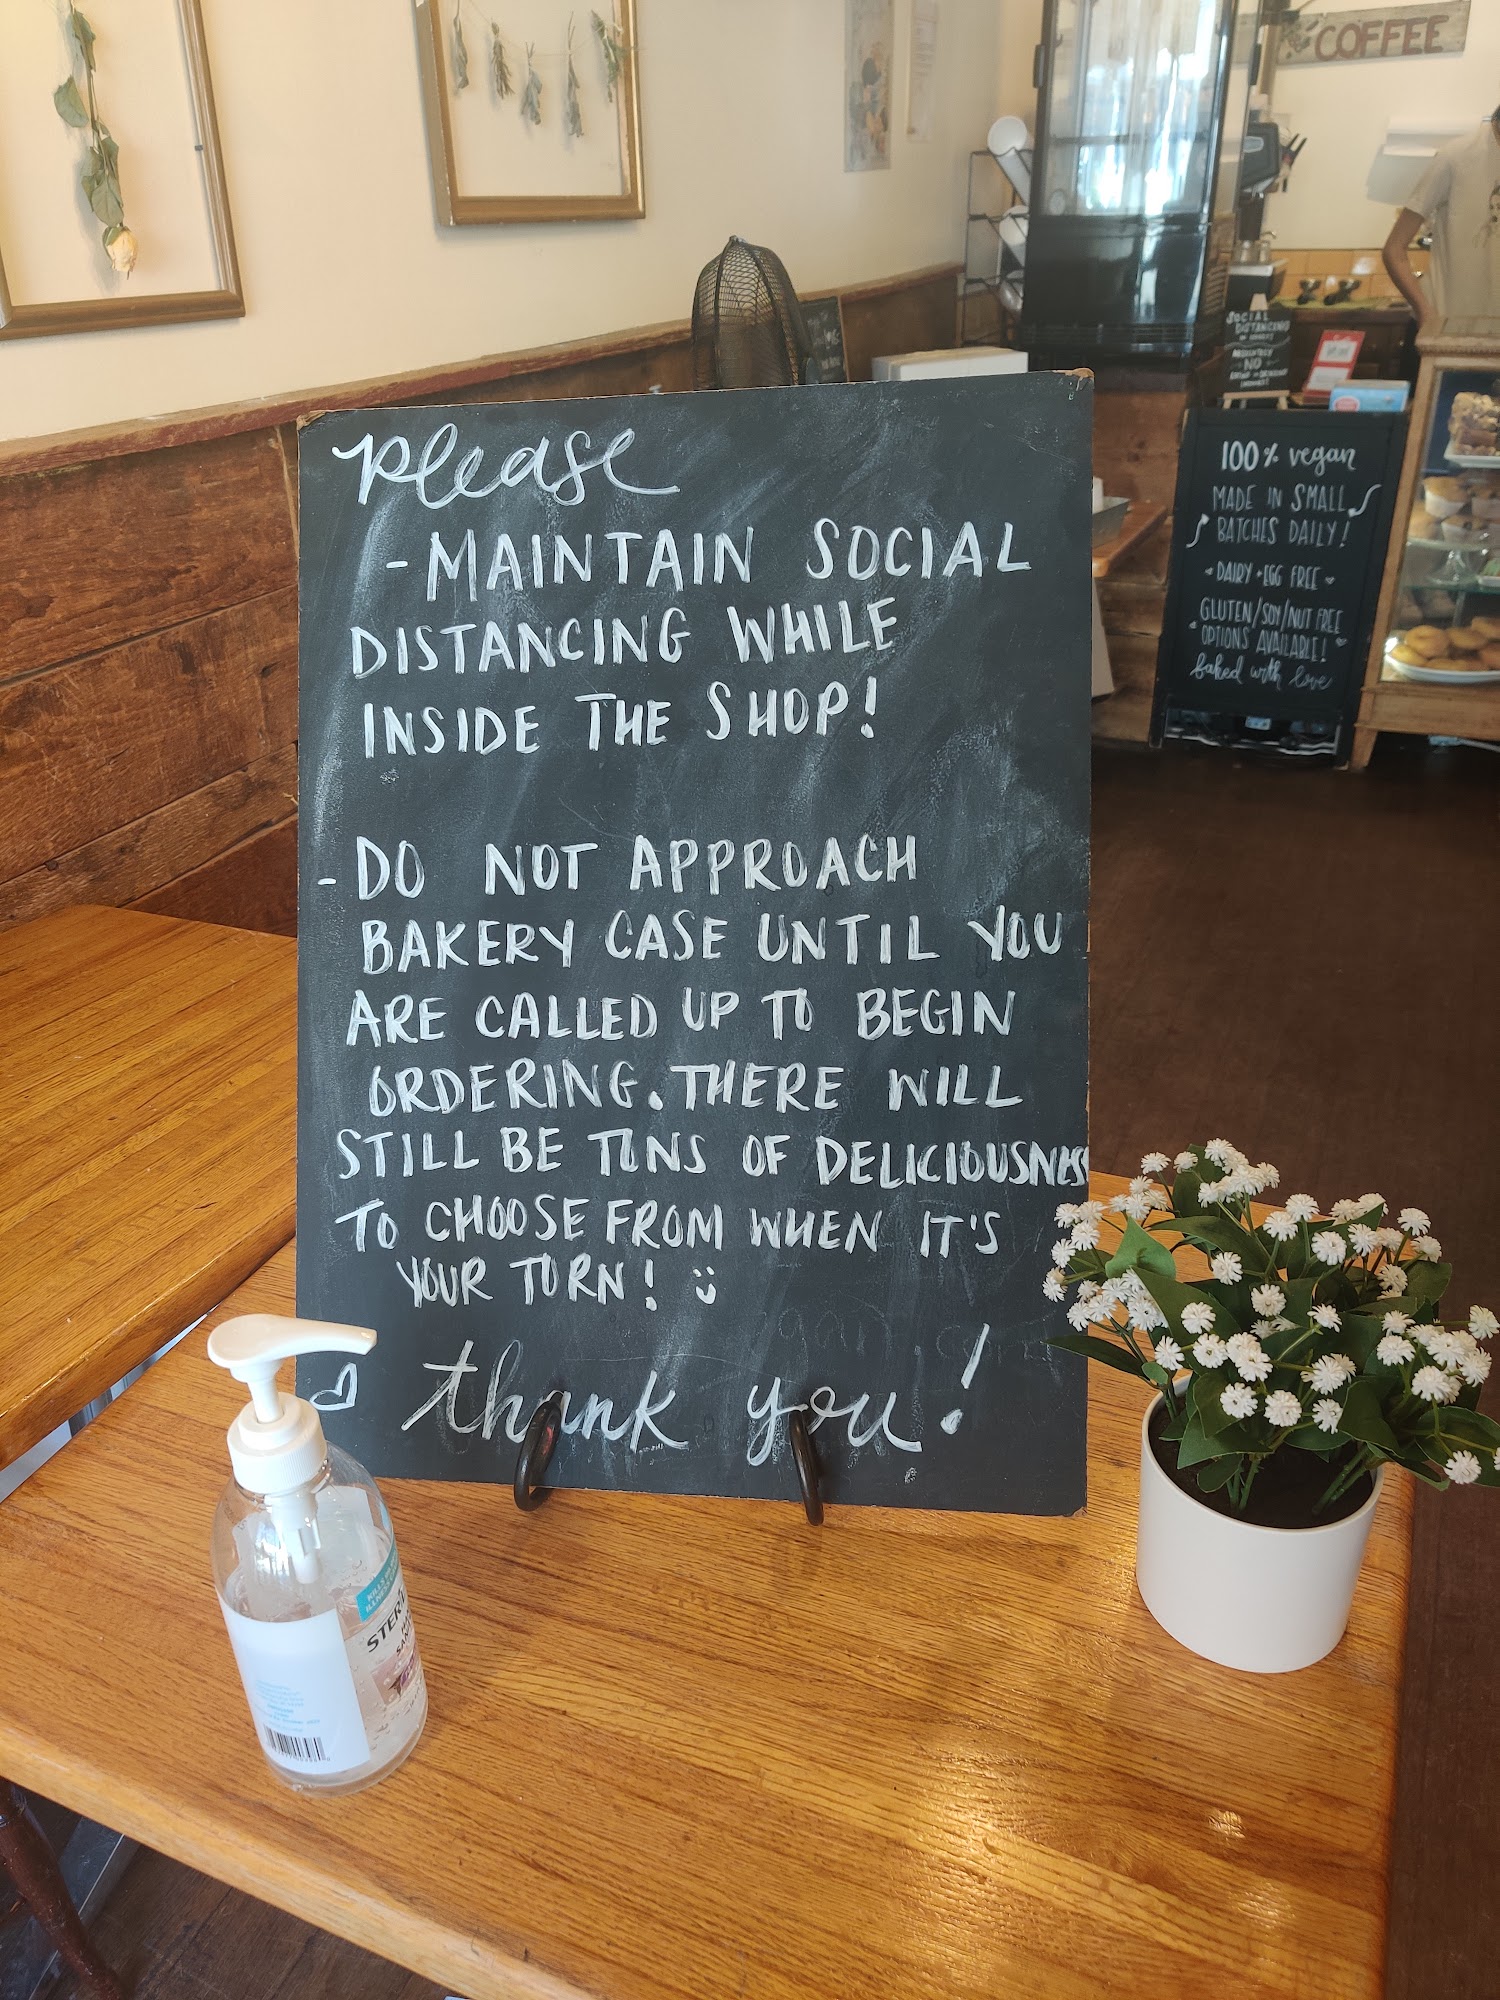 please
- MAINTAIN SOCIAL
DISTANCING WHILE
INSIDE THE SHOP!
- DO NOT APPROACH
BAKERY CASE UNTIL YOU
ARE CALLED UP TO BEGIN
ORDERING. THERE WILL
STILL BE TONS OF DELICIOUSNESS
TO CHOOSE FROM WHEN IT'S
YOUR TURN! :)
thank you!
COFFEE
SOCIAL
DISTANCING
NO
100% vegan
MADE IN SMALL
BATCHES DAILY!
DAIRY + EGG FREE
GLUTEN/SOY/NUT FREE
OPTIONS AVAILABLE!
baked with love